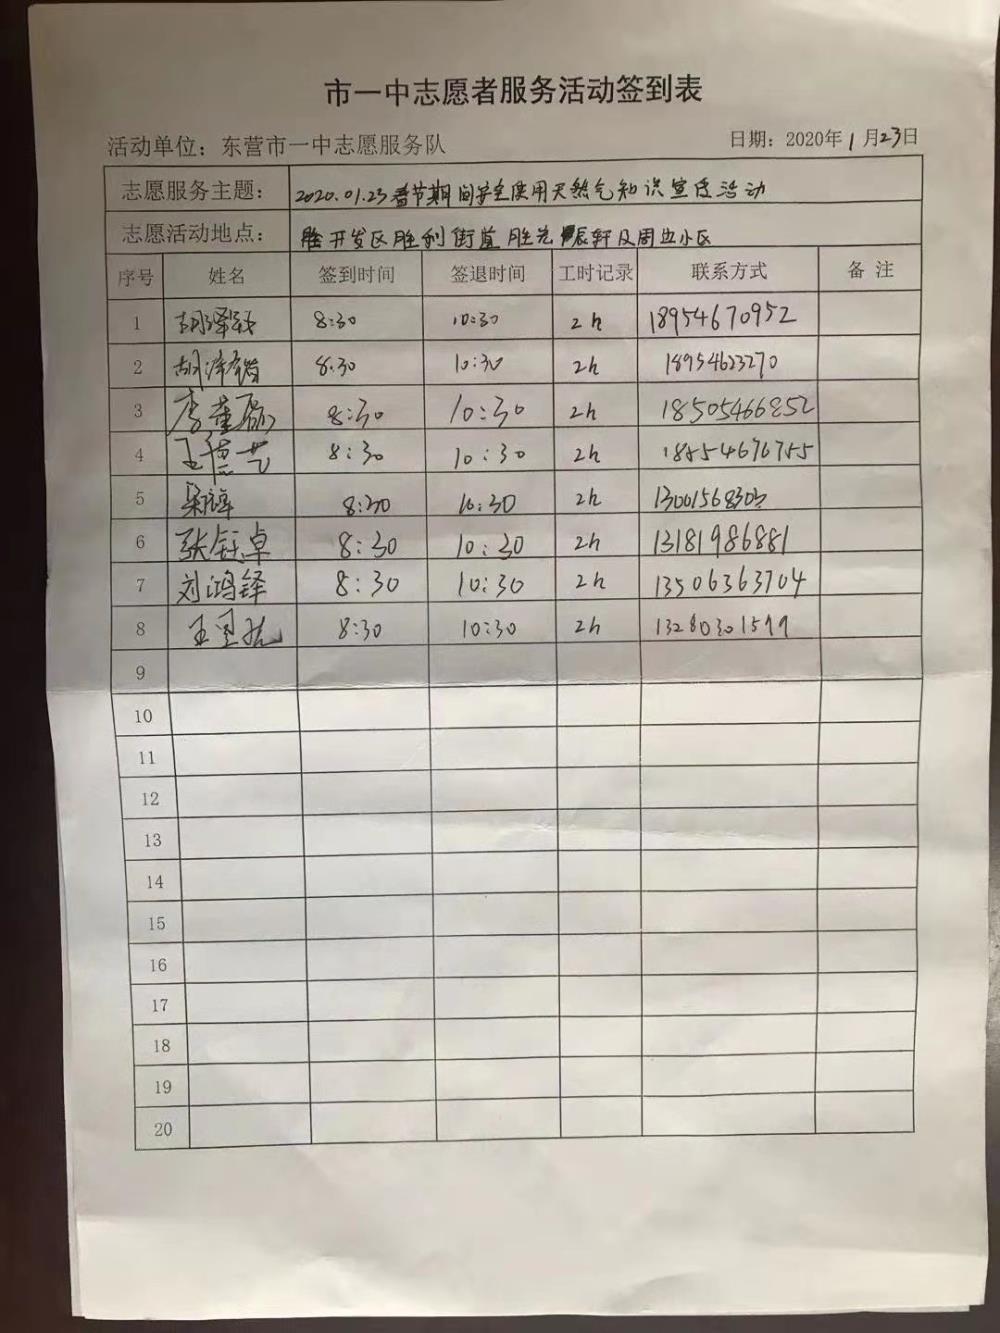 市一中志愿者服务活动签到表
活动单位：东营市一中志愿服务队 日期：2020年1月23日
志愿服务主题： 2020.01.23春节期间安全使用天然气知识宣传活动
志愿活动地点： 开发区胜利街道 胜 辰轩及周边小区
序号 姓名 签到时间 签退时间 工时记录 联系方式 备注
1 胡泽 8:30 10:30 2h 18954670952
2 胡泽 8:30 10:30 2h 18954623270
3 李 8:30 10:30 2h 18505466852
4 王 艺 8:30 10:30 2h
5 8:30 10:30 2h
6 张钰卓 8:30 10:30 2h 13181986881
7 刘鸿铎 8:30 10:30 2h 13506363704
8 王 8:30 10:30 2h 13280301599
9
10
11
12
13
14
15
16
17
18
19
20